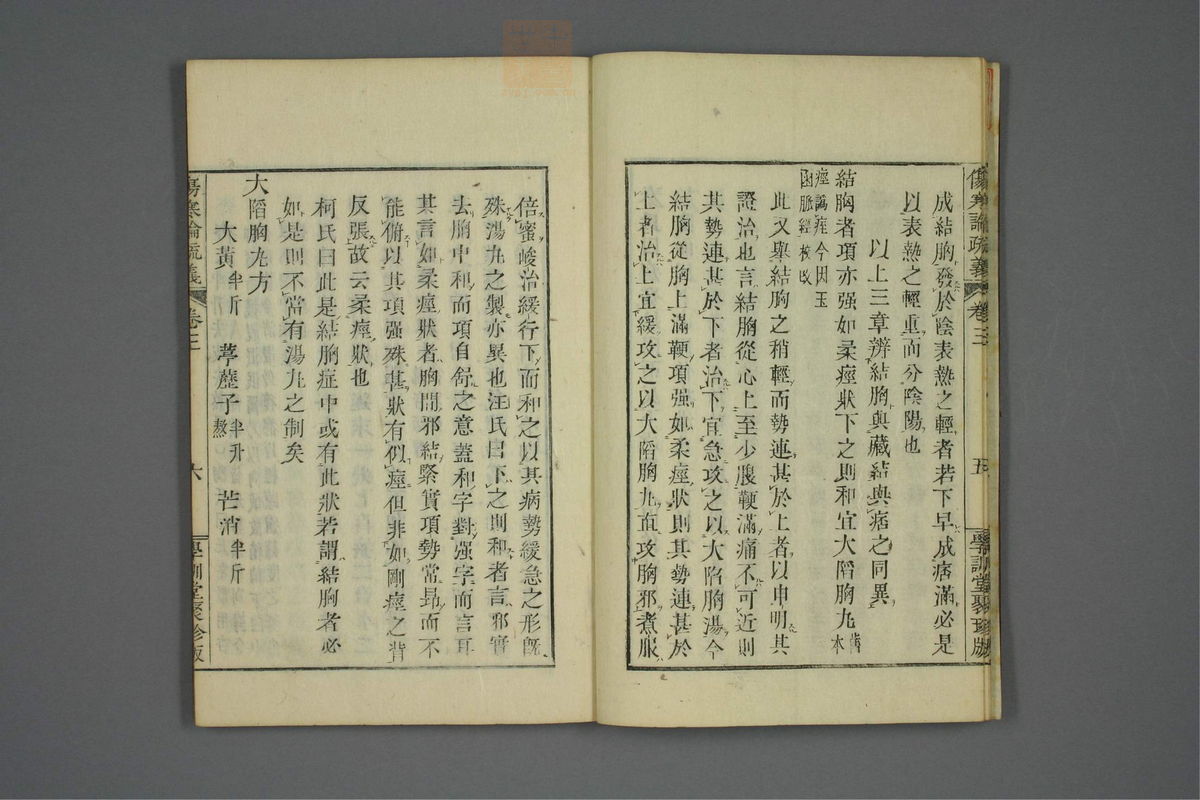 傷寒論疏義 卷三 五 學訓堂聚珍版
成結胸發於陰表熱之輕者若下早成痞滿必是
以表熱之輕重而分陰陽也
以上三章辨結胸與藏結與痞之同異
結胸者項亦强如柔痙狀下之則和宜大陷胸丸舊本
痙譌痓今因玉
函脈經校改
此又舉結胸之稍輕而勢連甚於上者以申明其
證治也言結胸從心上至少腹鞕滿痛不可近則
其勢連甚於下者治下宜急攻之以大陷胸湯今
結胸從胸上滿鞕項强如柔痙狀則其勢連甚於
上者治上宜緩攻之以大陷胸丸直攻胸邪煮服
倍蜜峻治緩行下而和之以其病勢緩急之形旣
殊湯丸之製亦異也汪氏曰下之則和者言邪實
去胸中和而項自舒之意蓋和字對强字而言耳
其言如柔痙狀者胸間邪結緊實項勢常昻而不
能俯以其項强殊甚狀有似痙但非如剛痙之背
反張故云柔痙狀也
柯氏曰此是結胸症中或有此狀若謂結胸者必
如是則不當有湯丸之制矣
大陷胸丸方
大黃半斤 葶藶子半升熬 芒消半斤
傷寒論疏義 卷三 六 學訓堂聚珍版